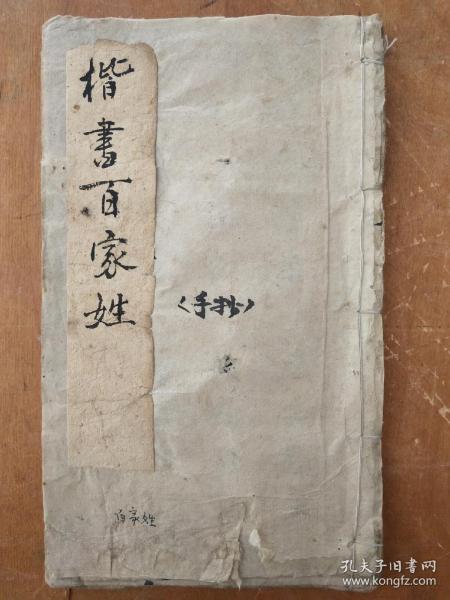 楷書百家姓
(手抄)
百家姓
孔夫子旧书网
www.kongfz.com